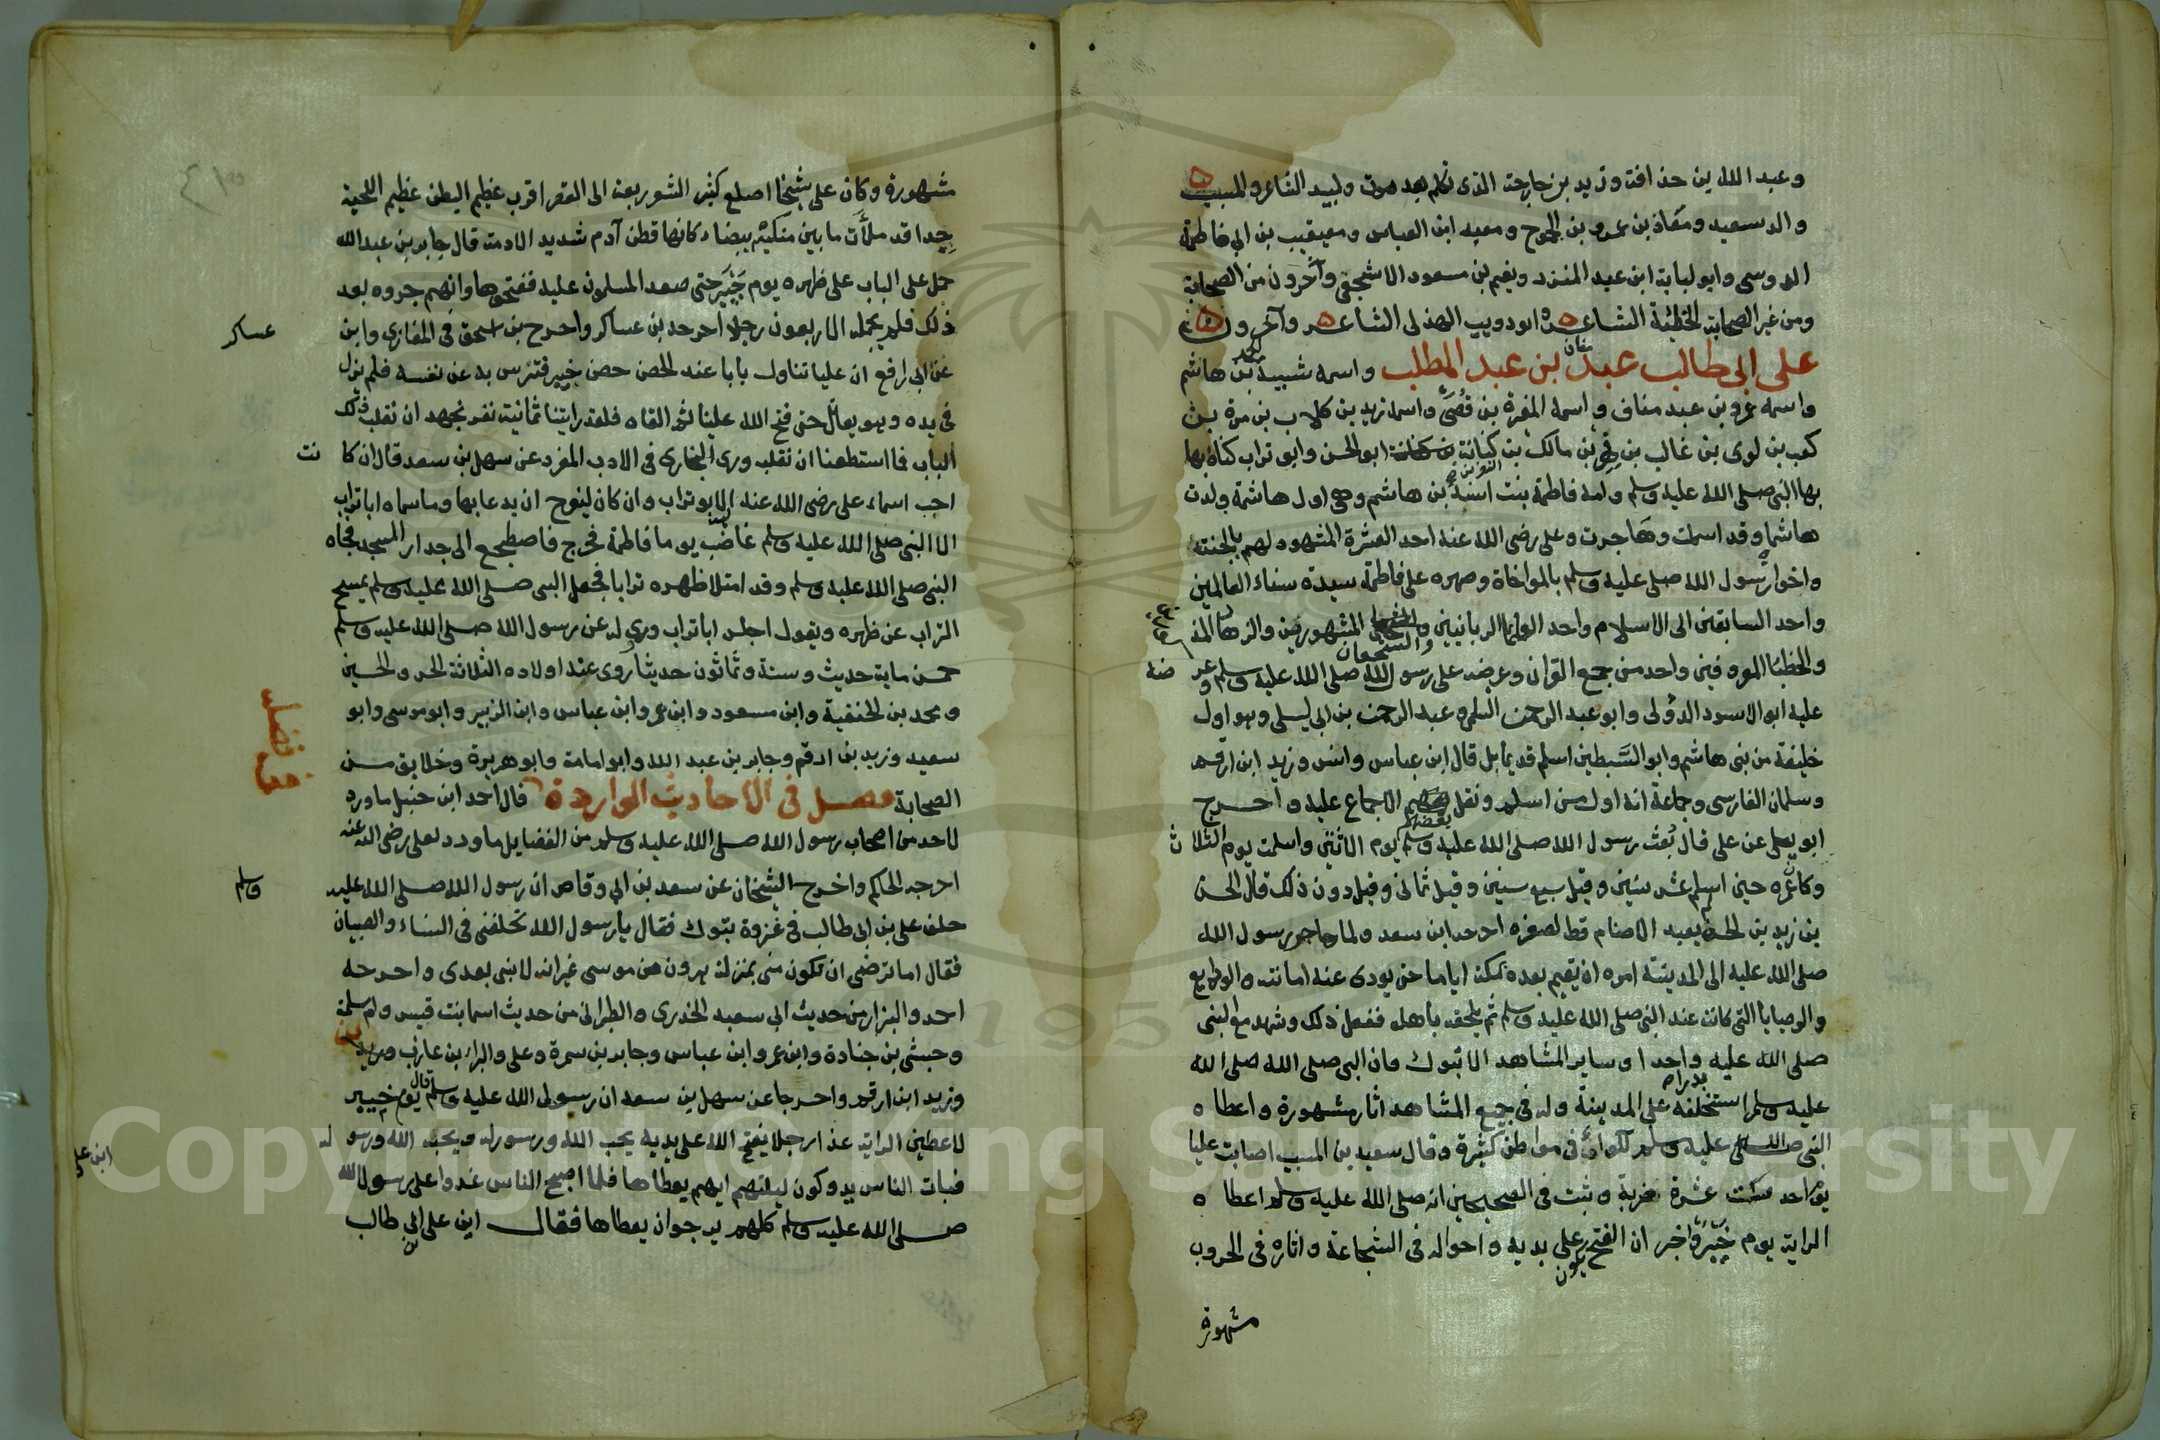 وعبد الله بن حذافة وزيد بن خارجة الذى تكلم بعد موت ولبيد الشاعر والمسيب
والد سعيد ومعاذ بن عمرو بن الجموح ومعبد ابن العباس ومعيقيب بن ابي فاطمة
الدوسى وابو لبابة ابن عبد المنذر ونعيم بن مسعود الاشجعى وآخرون من الصحابة
ومن غير الصحابة الحطيئة الشاعر ابو ذويب الهذلى الشاعر وآخرون
على ابى طالب عبد مناف بن عبد المطلب واسمه شيبة بن هاشم
واسمه عمرو بن عبد مناف واسمه المغيرة بن قصى واسمه زيد بن كلاب بن مرة بن
كعب بن لوى بن غالب بن فهر بن مالك بن النضر بن كنانة ابو الحسن وابو تراب كناه بها
بها النبى صلى الله عليه وسلم وامه فاطمة بنت اسد بن هاشم وهى اول هاشمة ولدت
هاشما وقد اسلمت وهاجرت وعلى رضى الله عنه احد العشرة المشهود لهم بالجنة
واخو رسول الله صلى عليه وسلم بالمواخاة وصهره على فاطمة سيدة نساء العالمين
واحد السابقين الى الاسلام واحد العلما الربانيين والشجعان المشهورين والزهاد المذ
والخطبا المعروفين واحد من جمع القرآن وعرضه على رسول الله صلى الله عليه وسلم وعر ضه
عليه ابو الاسود الدؤلى وابو عبد الرحمن السلمى وعبد الرحمن بن ابي ليلى وهو اول
خليفة من بنى هاشم وابو السبطين اسلم قديما بل قال ابن عباس وانس وزيد ابن ارقم
وسلمان الفارسى وجماعة انه اول من اسلم ونقل بعضهم الاجماع عليه واخرج
ابو يعلى عن على قال بعث رسول الله صلى الله عليه وسلم يوم الاثنين واسلمت يوم الثلاثا
وكان عمره حين اسلم عشر سنين وقيل سبع سنين وقيل ثمانى وقيل دون ذلك قال الحسن
بن زيد بن الحسن لم يعبد الاصنام قط لصغره اخرجه ابن سعد ولما هاجر رسول الله
صلى الله عليه الى المدينة امره ان يقيم بعده بمكة اياما حتى يودى عنه امانته والودايع
والوصايا التى كانت عند النبى صلى الله عليه وسلم ثم يلحقه باهله ففعل ذلك وشهد مع النبى
صلى الله عليه واحدا وساير المشاهد الا تبوك فان النبى صلى الله صلى الله
عليه وسلم استخلفه على المدينة وله فى جميع المشاهد اثار مشهورة واعطاه
النبى صلى الله عليه وسلم اللواء فى مواطن كثيرة وقال سعيد بن المسيب اصابت عليا
يوم احد ست عشرة ضربة وثبت فى الصحيحين انه صلى الله عليه وسلم اعطاه
الراية يوم خيبر واخبر ان الفتح يكون على يديه واحواله فى الشجاعة واثاره فى الحروب
مشهورة
مشهورة وكان على شيخا اصلع كثير الشعر ربعة الى القصر اقرب عظيم البطن عظيم اللحية
جدا قد ملأت ما بين منكبيه بيضاء كانها قطن آدم شديد الادمة قال جابر بن عبد الله
حمل على الباب على ظهره يوم خيبر حتى صعد المسلمون عليه ففتحوها وانهم جروه بعد
ذلك فلم يحمله الا اربعون رجلا اخرجه بن عساكر واخرج بن اسحق فى المغازى وابن عساكر
عن ابى رافع ان عليا تناول بابا عند الحصن حصن خيبر فتترس به عن نفسه فلم يزل
فى يده وهو يقاتل حتى فتح الله علينا ثم القاه فلقد رايتنا ثمانية نفر نجهد ان نقلب ذلك
الباب فما استطعنا ان نقلبه وروى البخارى فى الادب المفرد عن سهل بن سعد قال ان كا نت
احب اسماء على رضى الله عنه الا ابو تراب وان كان ليفرح ان يدعا بها وما سماه ابا تراب
الا النبى صلى الله عليه وسلم غاضب يوما فاطمة فخرج فاضطجع الى جدار المسجد فجاه
النبى صلى الله عليه وسلم وقد امتلا ظهره ترابا فجعل النبى صلى الله عليه وسلم يمسح
التراب عن ظهره ويقول اجلس ابا تراب وروى له عن رسول الله صلى الله عليه وسلم
خمس ماية حديث وستة وثمانون حديثا روى عنه اولاده الثلاثة الحسن والحسين
ومحمد بن الحنفية وابن مسعود وابن عمر وابن عباس وابن الزبير وابو موسى وابو
سعيد وزيد بن ارقم وجابر بن عبد الله وابو امامة وابو هريرة وخلايق من
الصحابة فصل فى الاحاديث الواردة فى فضله قال احمد ابن حنبل ما ورد
لاحد من اصحاب رسول الله صلى الله عليه وسلم من الفضايل ما ورد لعلى رضى الله عنه
اخرجه الحاكم واخرج الشيخان عن سعد بن ابي وقاص ان رسول الله صلى الله عليه وسلم
خلف على بن ابى طالب فى غزوة تبوك فقال يا رسول الله تخلفنى فى النساء والصبيان
فقال اما ترضى ان تكون منى بمنزلة هرون من موسى غير انه لا نبى بعدى واخرجه
احمد والبزار من حديث ابى سعيد الخدرى والطبرانى من حديث اسما بنت قيس وام سلمة
وحبشى بن جنادة وابن عمر وابن عباس وجابر بن سمرة وعلى والبراء بن عازب
وزيد ابن ارقم واخرجا عن سهل بن سعد ان رسول الله عليه وسلم قال يوم خيبر
لاعطين الراية غدا رجلا يفتح الله على يديه يحب الله ورسوله ويحبه الله ورسو له
فبات الناس يدوكون ليلتهم ايهم يعطاها فلما اصبح الناس غدوا على رسول الله
صلى الله عليه وسلم كلهم يرجوان يعطاها فقال اين على بن ابي طالب
Copyright © King Saud University
1957